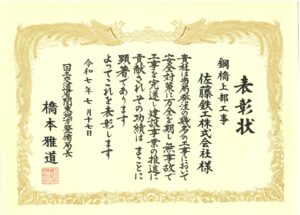 表彰状
鋼橋上部工事
佐藤鉄工株式会社様
貴社は当局発注の標名の工事において
安全対策に万全を期し無事故で
工事を完遂し建設事業の推進に
貢献されその功績はまことに
顕著であります
よってこれを表彰します
令和七年七月十七日
国土交通省関東地方整備局長
橋本雅道